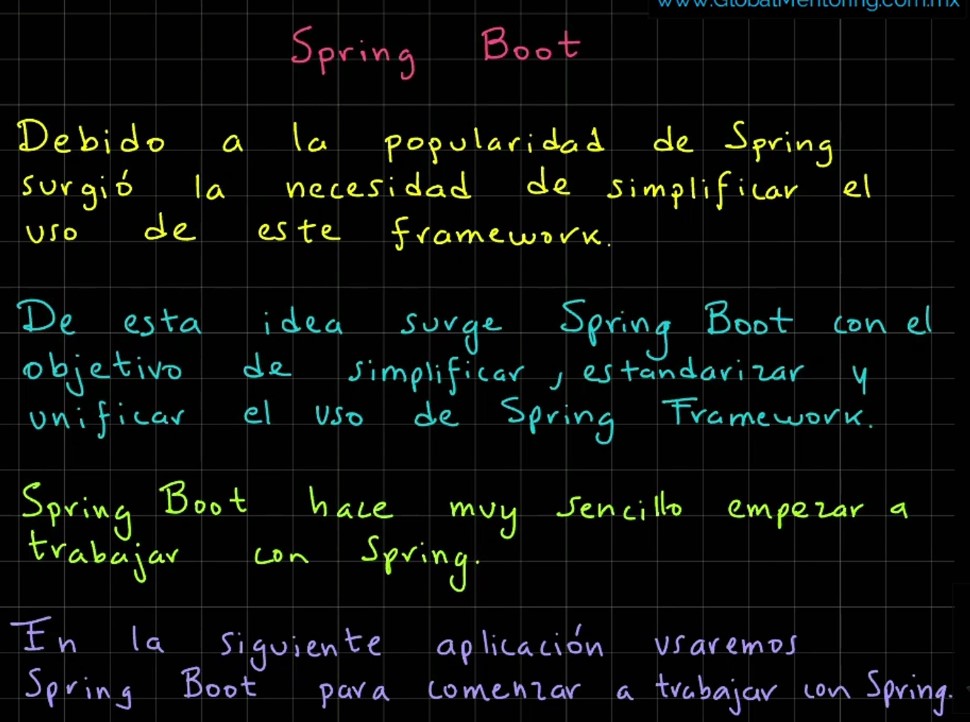 www.GlobalMentoring.com.mx
Spring Boot
Debido a la popularidad de Spring
surgió la necesidad de simplificar el
uso de este framework.
De esta idea surge Spring Boot con el
objetivo de simplificar, estandarizar y
unificar el uso de Spring Framework.
Spring Boot hace muy sencillo empezar a
trabajar con Spring.
En la siguiente aplicación usaremos
Spring Boot para comenzar a trabajar con Spring.